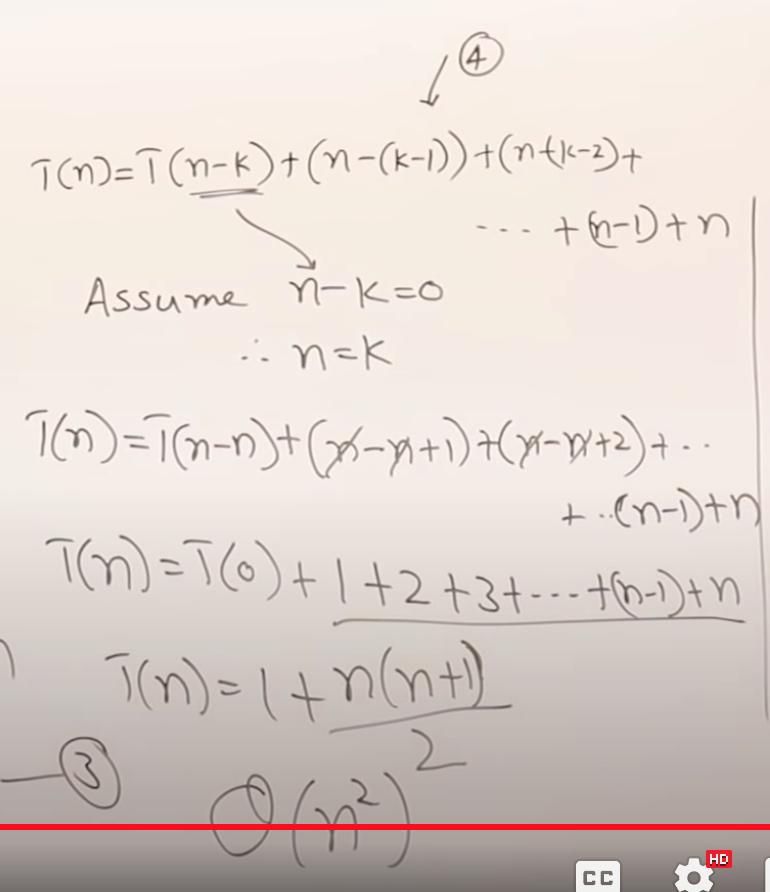 ④
T(n)=T(n-k)+(n-(k-1))+(n-(k-2)+
.... +(n-1)+n
Assume n-k=0
∴ n=k
T(n)=T(n-n)+(n-n+1)+(n-n+2)+..
+..(n-1)+n
T(n)=T(0)+1+2+3+....+(n-1)+n
T(n)=1+n(n+1)
2
③
O(n²)
CC HD